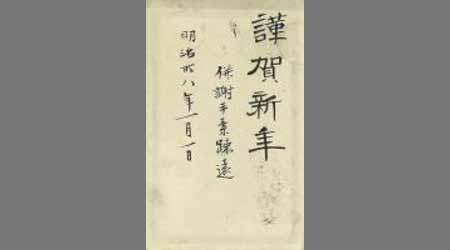 謹賀新年
併謝平素踈遠
明治卅八年一月一日